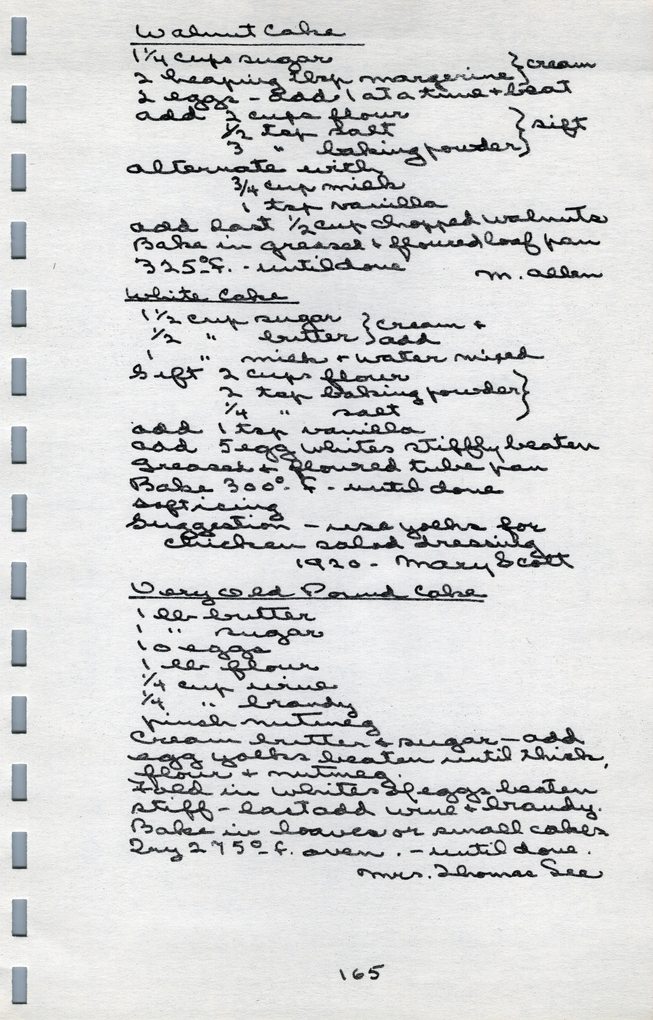 Walnut Cake
1 1/4 cups sugar } cream
2 heaping tbsp margerine
2 eggs - add 1 at a time + beat
add 2 cups flour
1/2 tsp salt } sift
3 " baking powder
alternate with
3/4 cup milk
1 tsp vanilla
add last 1/2 cup chopped walnuts
Bake in greased + floured loaf pan
325° F. - until done
M. Allen
White Cake
1 1/2 cup sugar } cream +
1/2 " butter add
1 " milk + water mixed
Sift 2 cups flour
2 tsp baking powder }
1/4 " salt
add 1 tsp vanilla
add 5 egg whites stiffly beaten
Greased + floured tube pan
Bake 300° F - until done
soft icing
Suggestion - use yolks for
chicken salad dressing
1920 - Mary Scott
Very Old Pound Cake
1 lb butter
1 " sugar
10 eggs
1 lb flour
1/4 cup wine
1/4 " brandy
pinch nutmeg
Cream butter + sugar - add
egg yolks beaten until thick,
flour + nutmeg.
Fold in whites of eggs beaten
stiff - last add wine + brandy.
Bake in loaves or small cakes
275° F. oven. - until done.
Mrs. Thomas See
165